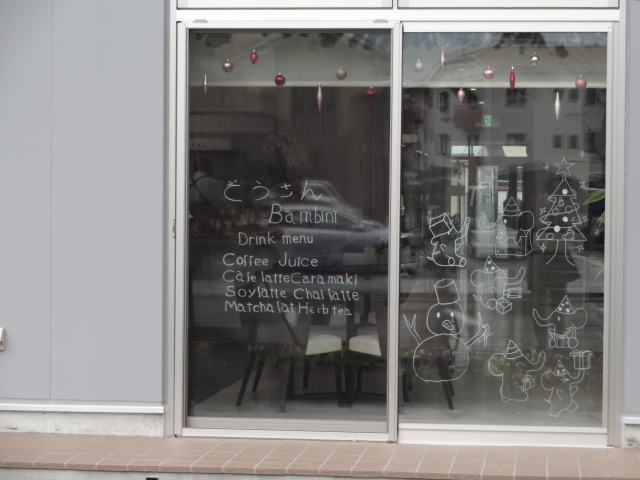 ぞうさん
Bambini
Drink menu
Coffee Juice
Cafe latte Caramaki
Soylatte Chai latte
Matcha lat Herb tea